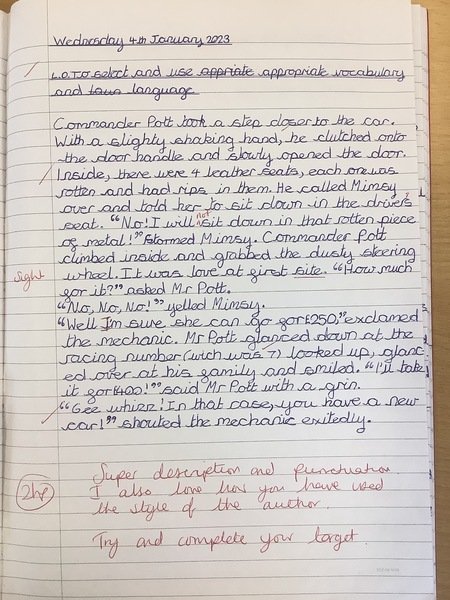 Wednesday 4th January 2023
L.O. To select and use appriate appropriate vocabulary
and language
Commander Pott took a step closer to the car.
With a slighty shaking hand, he clutched onto
the door handle and slowly opened the door.
Inside, there were 4 leather seats, each one was
rotten and had rips in them. He called Mimsy
over and told her to sit down in the drivers
seat. "No! I will not sit down in that rotten piece
of metal!" stormed Mimsy. Commander Pott
climbed inside and grabbed the dusty steering
sight
wheel. It was love at first site. "How much
for it?" asked Mr Pott.
"No, No, No!" yelled Mimsy.
"Well I'm sure she can go for £250," exclamed
the mechanic. Mr Pott glanced down at the
racing number (wich was 7) looked up, glanc-
ed over at his family and smiled. "I'll take
it for £400!" said Mr Pott with a grin.
"Gee whizz! In that case, you have a new
car!" shouted the mechanic exitedly.
2hp
Super description and punctuation.
I also love how you have used
the style of the author.
Try and complete your target.